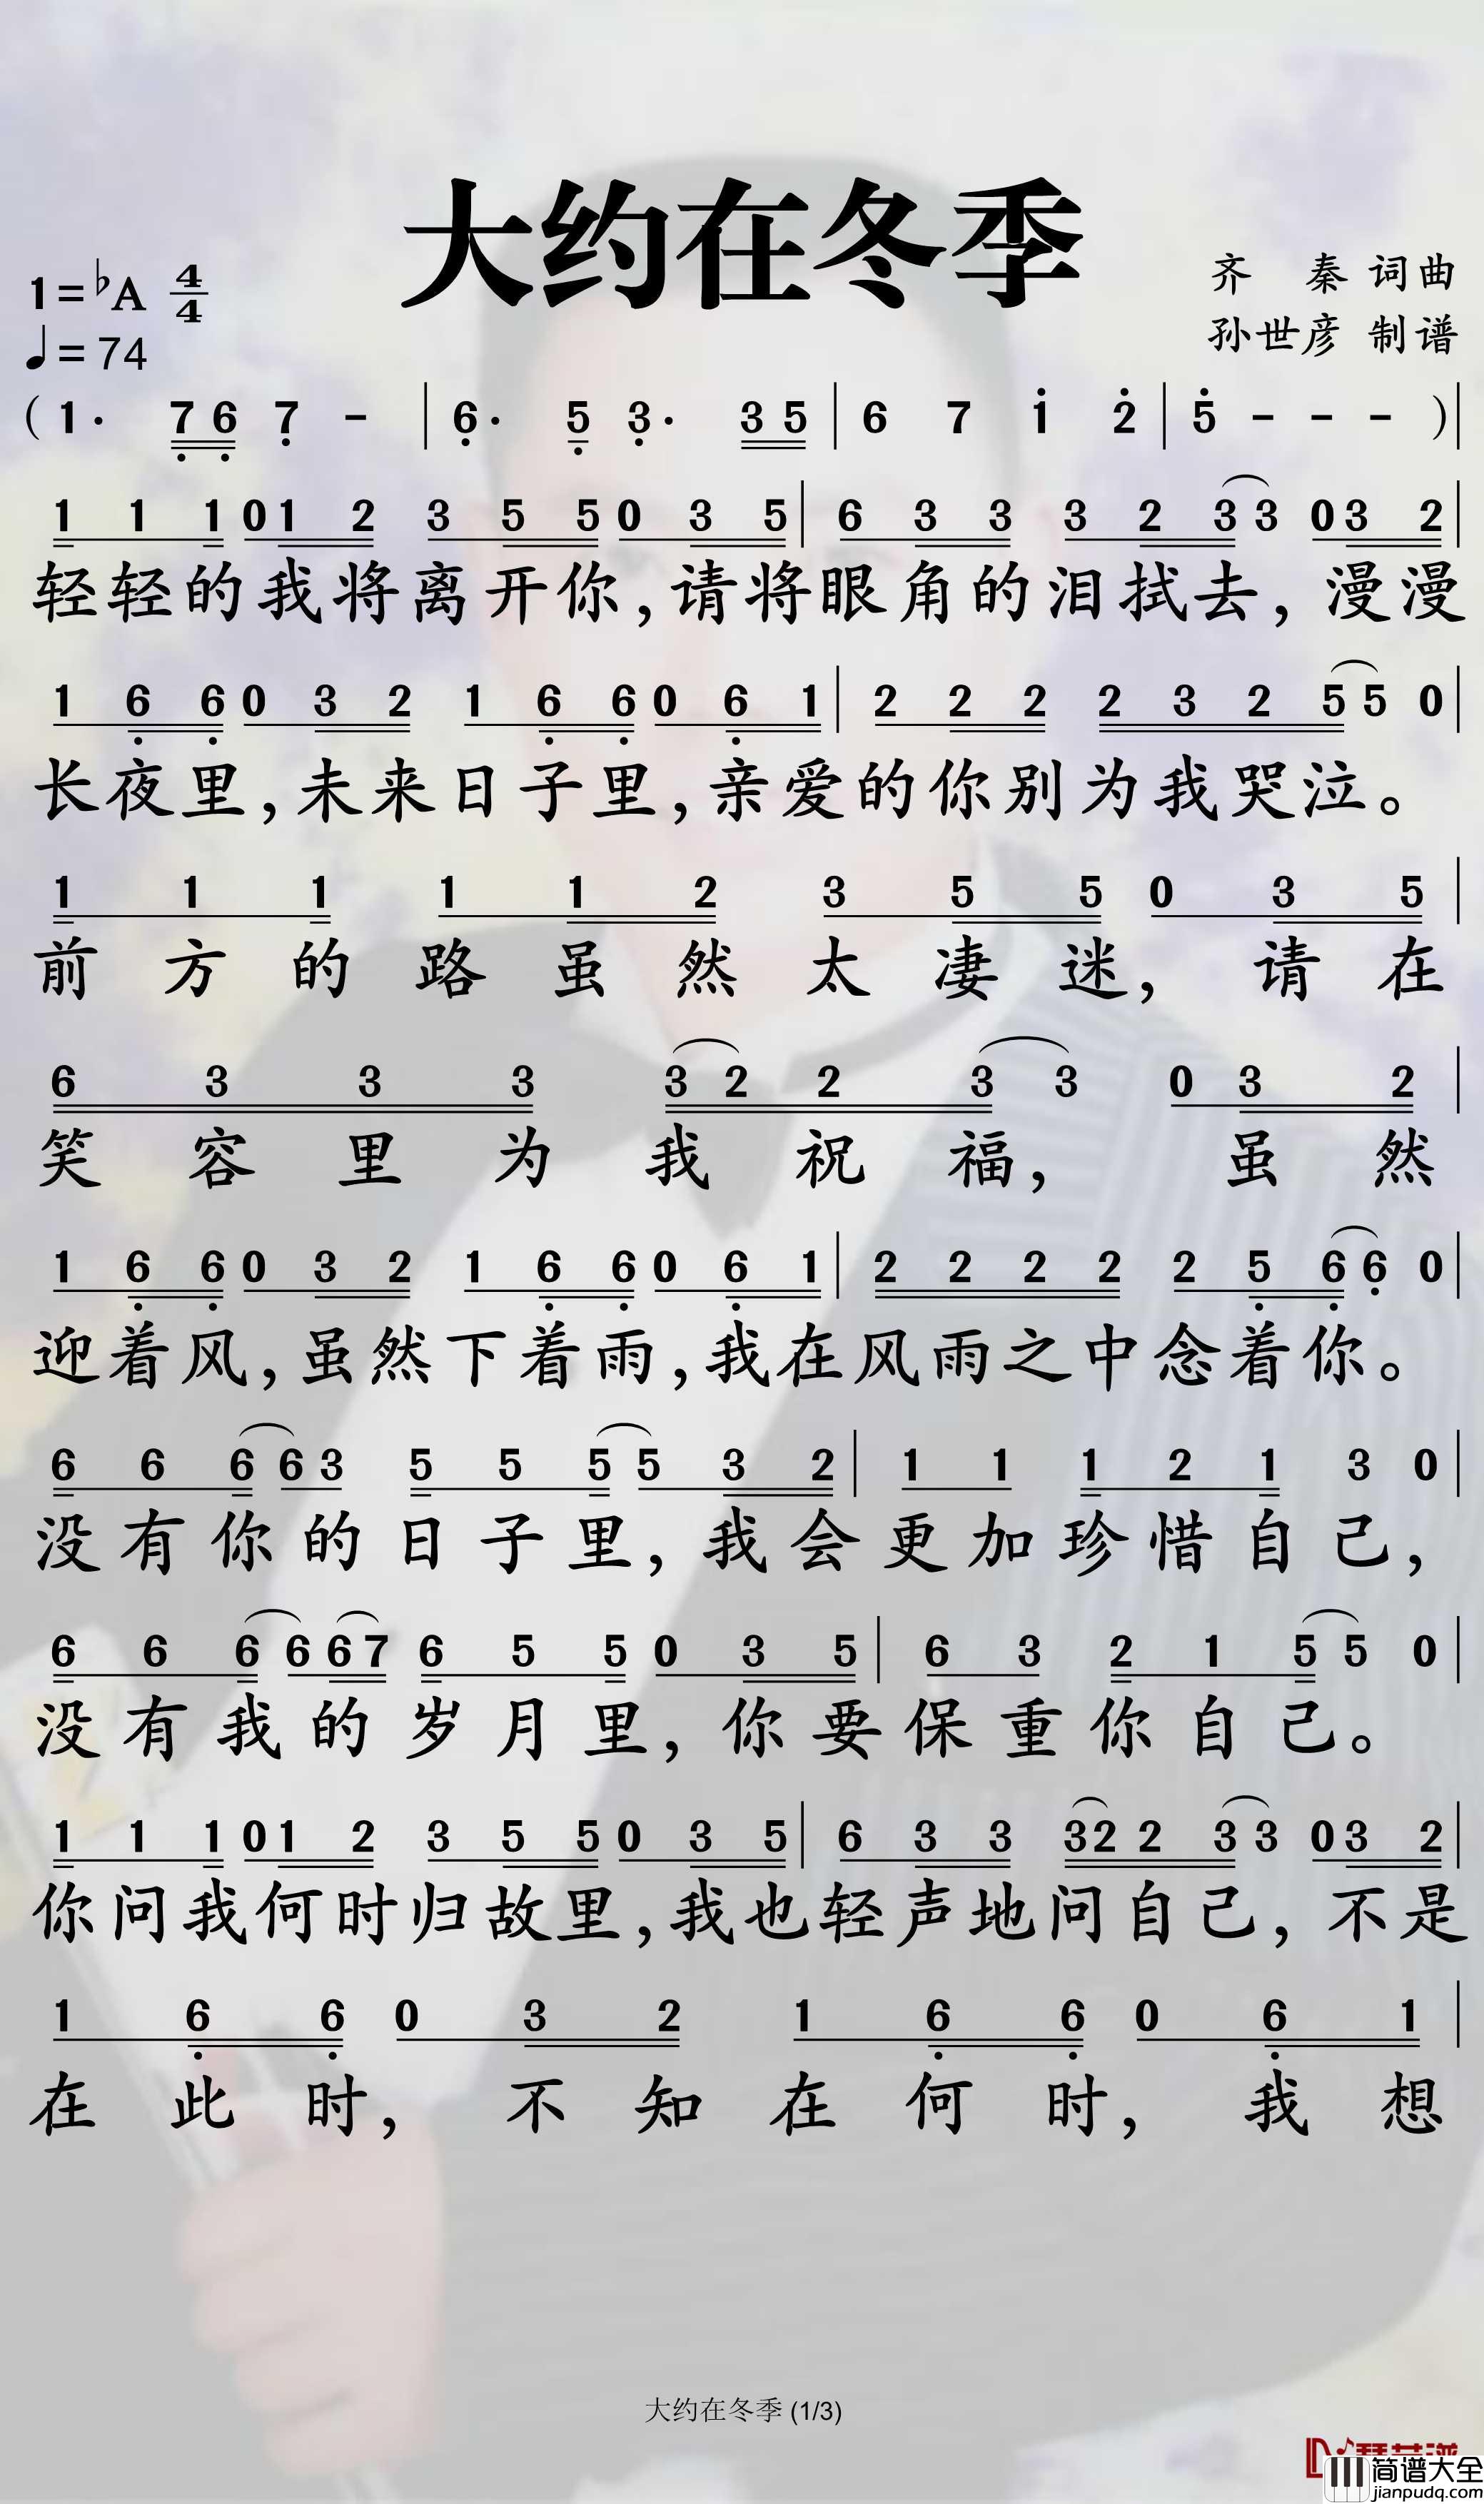 大约在冬季
1=♭A 4/4
齐 秦 词曲
♩=74
孙世彦 制谱
( 1· 7 6 7 - | 6· 5 3· 3 5 | 6 7 1 2 | 5 - - - ) |
1 1 1 0 1 2 3 5 5 0 3 5 | 6 3 3 3 2 3 3 0 3 2 |
轻轻的我将离开你,请将眼角的泪拭去,漫漫
1 6 6 0 3 2 1 6 6 0 6 1 | 2 2 2 2 3 2 5 5 0 |
长夜里,未来日子里,亲爱的你别为我哭泣。
1 1 1 1 1 2 3 5 5 0 3 5 |
前方的路虽然太凄迷,请在
6 3 3 3 3 2 2 3 3 0 3 2 |
笑容里为我祝福,虽然
1 6 6 0 3 2 1 6 6 0 6 1 | 2 2 2 2 2 5 6 6 0 |
迎着风,虽然下着雨,我在风雨之中念着你。
6 6 6 6 3 5 5 5 5 3 2 | 1 1 1 2 1 3 0 |
没有你的日子里,我会更加珍惜自己,
6 6 6 6 6 7 6 5 5 0 3 5 | 6 3 2 1 5 5 0 |
没有我的岁月里,你要保重你自己。
1 1 1 0 1 2 3 5 5 0 3 5 | 6 3 3 3 2 2 3 3 0 3 2 |
你问我何时归故里,我也轻声地问自己,不是
1 6 6 0 3 2 1 6 6 0 6 1 |
在此时,不知在何时,我想
大约在冬季 (1/3)
简谱大全
jianpudq.com